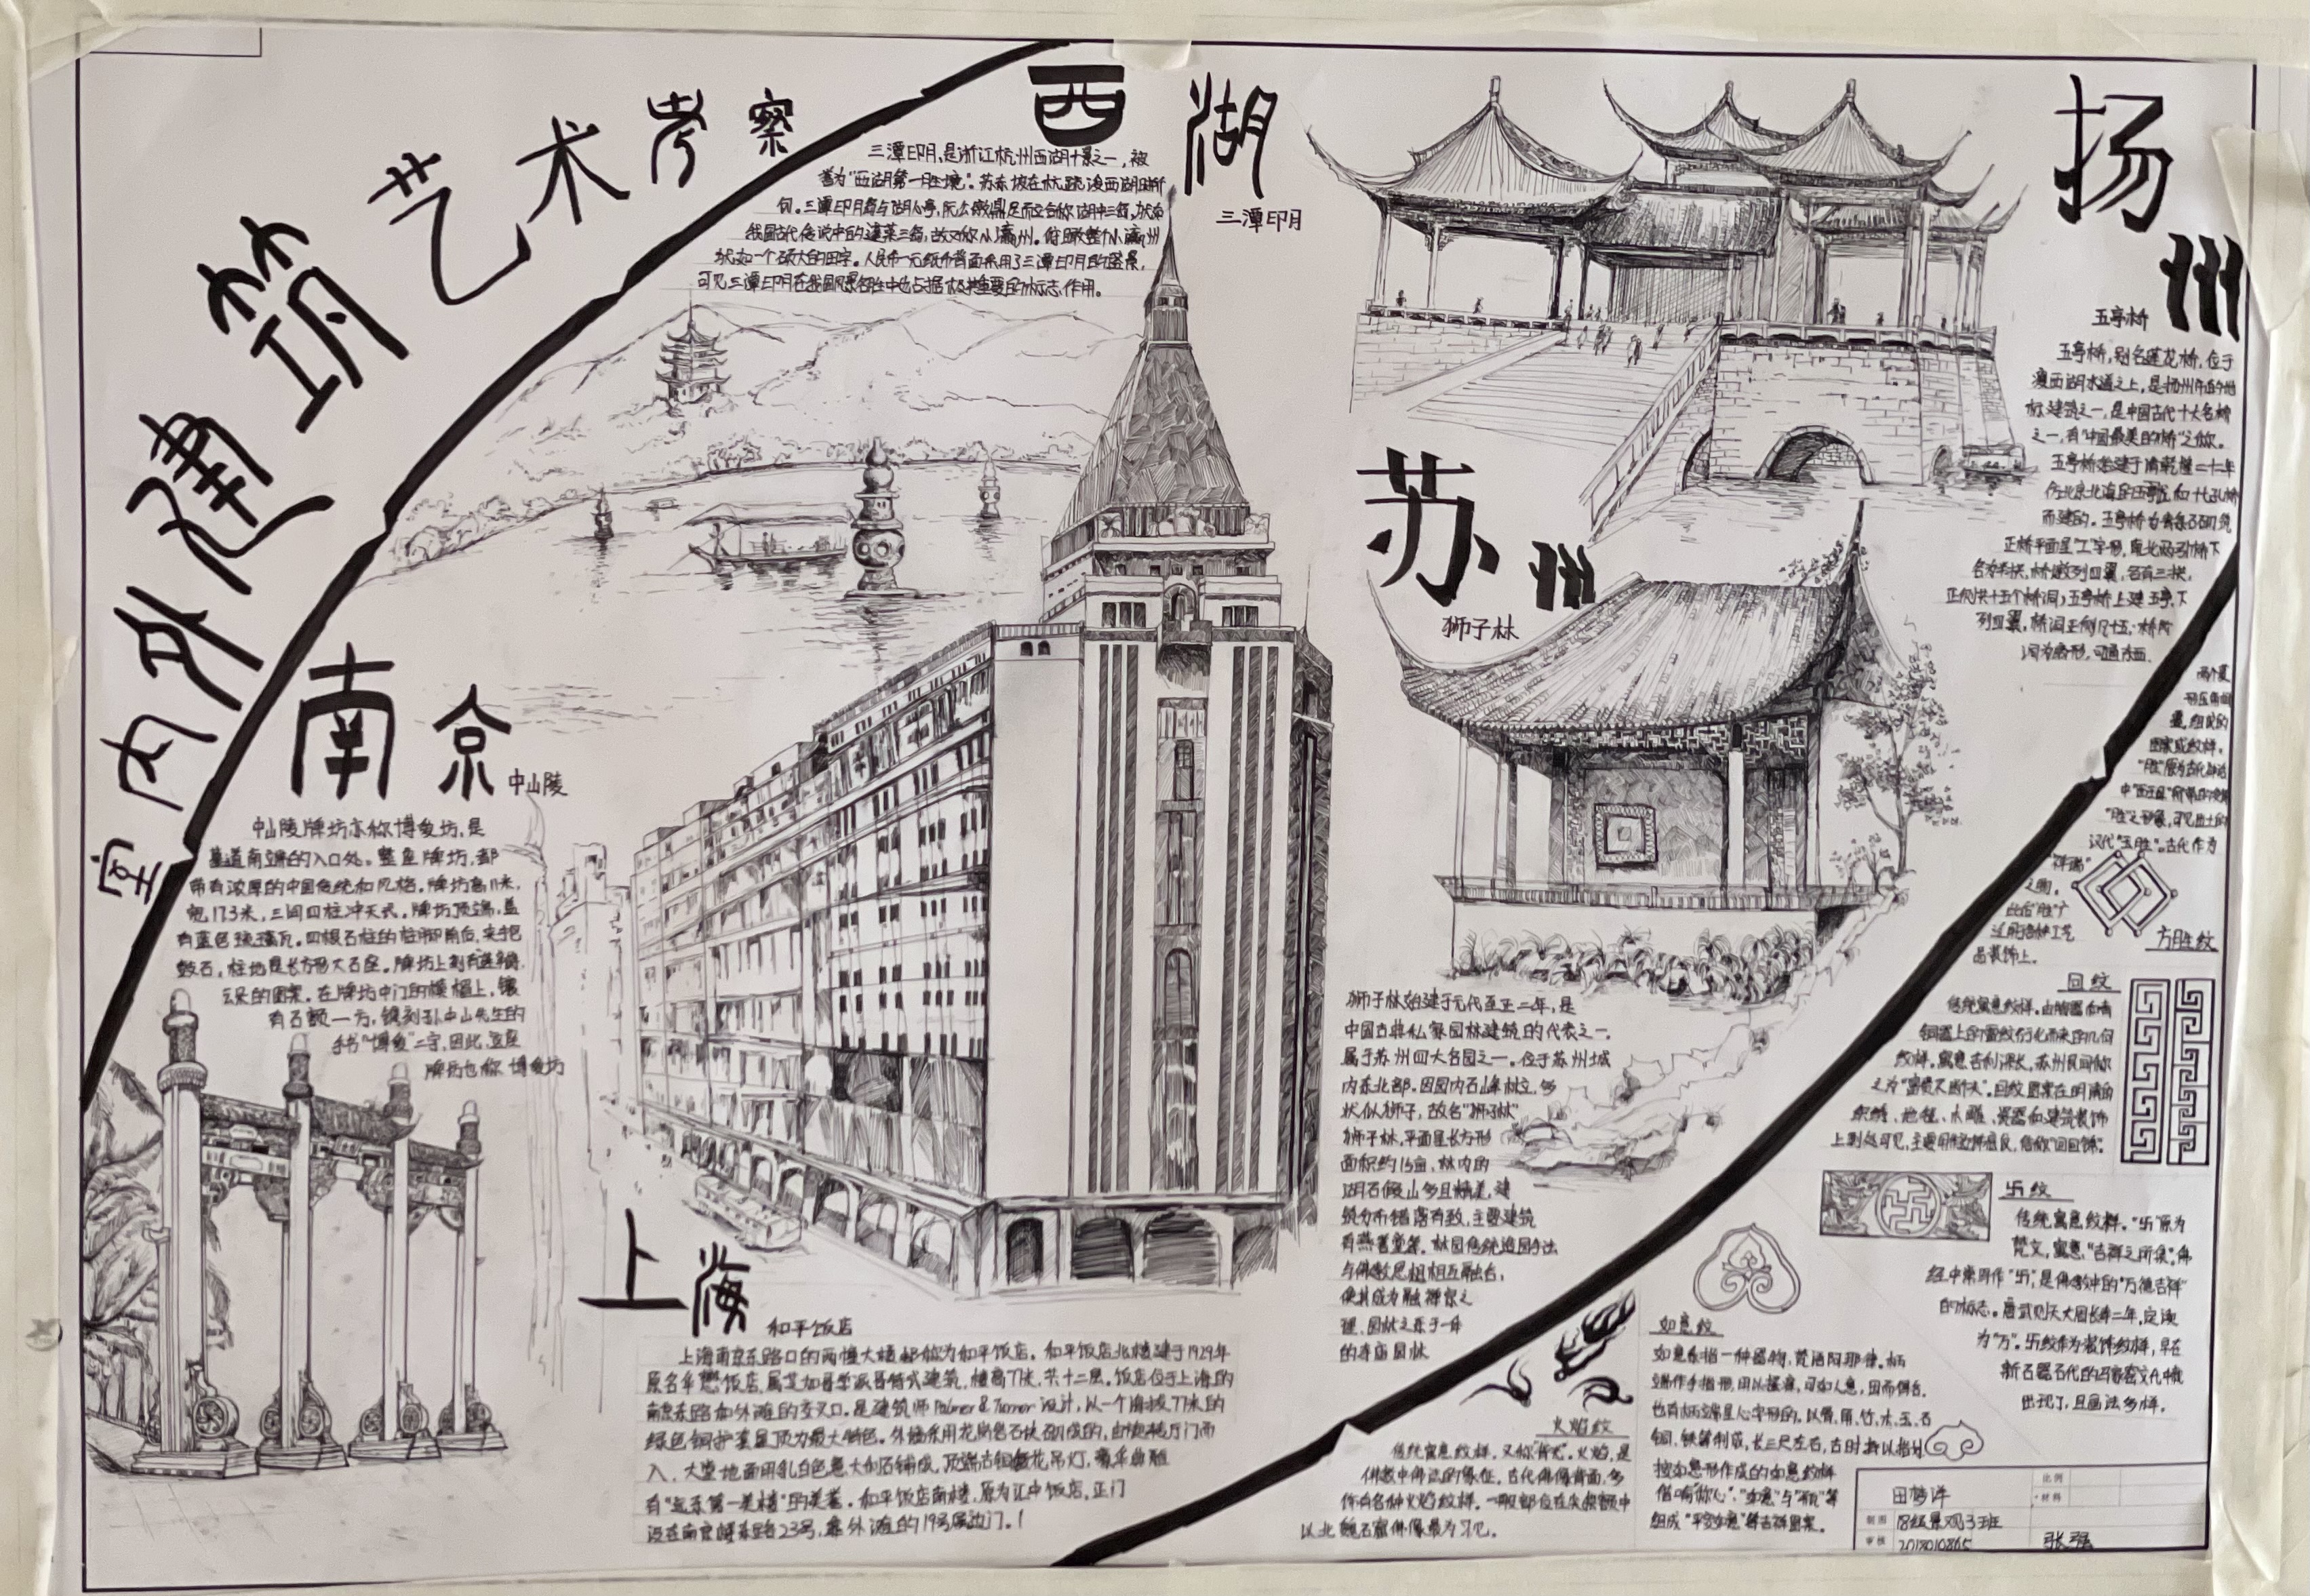 室内外建筑艺术考察
西湖
三潭印月
三潭印月,是浙江杭州西湖十景之一,被
誉为“西湖第一胜境”。苏东坡在杭疏浚西湖时所
我国古代传说中的蓬莱三岛,故又称小瀛州。俯瞰整个小瀛州
状如一个硕大的田字。人民币一元纸币背面采用了三潭印月的盛景,
可见三潭印月在我国风景名胜中也占据极其重要的标志作用。
扬州
五亭桥
五亭桥,别名莲花桥,位于
瘦西湖水道之上,是扬州市的地
标建筑之一,是中国古代十大名桥
之一,有“中国最美的桥”之称。
五亭桥始建于清乾隆二十二年
而建的。五亭桥为青条石砌筑
正侧共十五个桥洞;五亭桥上建五亭、下
列四翼,桥洞正侧凡十五。桥
洞为扇形,可通东西.
苏州
狮子林
狮子林始建于元代至正二年,是
中国古典私家园林建筑的代表之一.
属于苏州四大名园之一。位于苏州城
内东北部。因园内石峰林立,多
状似狮子,故名“狮子林”
狮子林,平面呈长方形
面积约15亩,林内的
湖石假山多且精美,建
筑分布错落有致,主要建筑
有燕誉堂等。林园传统造园手法
与佛教思想相互融合,
使其成为融禅宗之
理、园林之乐于一体
的寺庙园林
南京
中山陵
中山陵牌坊亦称博爱坊,是
墓道南端的入口处。整座牌坊,都
带有浓厚的中国传统和风格。牌坊高11米,
宽17.3米,三间四柱冲天式。牌坊顶端,盖
有蓝色琉璃瓦。四根石柱的柱脚前后,夹抱
鼓石,柱地是长方形大石座。牌坊上刻有莲瓣.
云朵的图案。在牌坊中门的横楣上,镶
有石额一方,镌刻孙中山先生的
手书“博爱”二字,因此,这座
牌坊也称 博爱坊
上海
和平饭店
上海南京东路口的两幢大楼都称为和平饭店。和平饭店北楼建于1929年
原名华懋饭店,属芝加哥学派哥特式建筑,楼高77米,共十二层。饭店位于上海的
南京东路和外滩的交叉口。是建筑师Palmer & Turner设计,以一个海拔77米的
绿色铜护套屋顶为最大特色。外墙采用花岗岩石块砌成的,由旋转厅门而
入,大堂地面用乳白色意大利石铺成,顶端古铜镂花吊灯,豪华典雅
有“远东第一美楼”的美誉。和平饭店南楼,原为汇中饭店,正门
设在南京东路23号,靠外滩的19号属边门。
两个菱
形压角相
叠,组成的
图案或纹样。
“胜”原为古代神话
“胜”之形象,可见出土的
汉代“玉胜”。古代作为
“祥瑞”
之物。
此后“胜”广
泛用诸种工艺
品装饰上。
方胜纹
回纹
传统寓意纹样。由陶器和青
铜器上的雷纹衍化而来的几何
纹样。寓意吉利深长,苏州民间称
之为“富贵不断头”。回纹图案在明清的
织绣、地毯、木雕、瓷器和建筑装饰
上到处可见,主要用作边饰或底,俗称“回回锦”。
卐纹
传统寓意纹样。“卐”原为
梵文,寓意“吉祥之所集”。佛
经中常写作“卐”,是佛教中的“万德吉祥”
的标志。唐武则天大周长寿二年,定读
为“万”。卐纹作为装饰纹样,早在
新石器石代的马家窑文化中就
出现了,且画法多样。
如意纹
如意系指一种器物,梵语阿那律。柄
端作手指形,用以搔痒,可如人意,因而得名.
也有柄端呈心字形的。以骨、角、竹、木、玉、石
铜、铁等制成,长三尺左右,古时持以指划
按如意形作成的如意纹样
借喻“称心”、“如意”与“瓶”等
组成“平安如意”等吉祥图案。
火焰纹
传统寓意纹样,又称“背光”。火焰,是
佛教中佛法的象征,古代佛像背面,多
作有各种火焰纹样。
以北魏石窟佛像最为习见。
田梦洋
比例
材料
制图
18级景观3班
审核
2018010865
张强